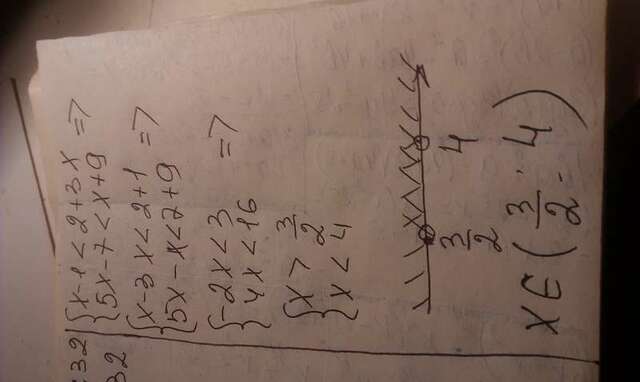 32) { x-1<2+3x =>
{ 5x-7<x+9
32
{ x-3x<2+1 =>
{ 5x-x<7+9
{ -2x<3 =>
{ 4x<16
{ x > 3/2
{ x < 4
3/2 4
x∈(3/2; 4)